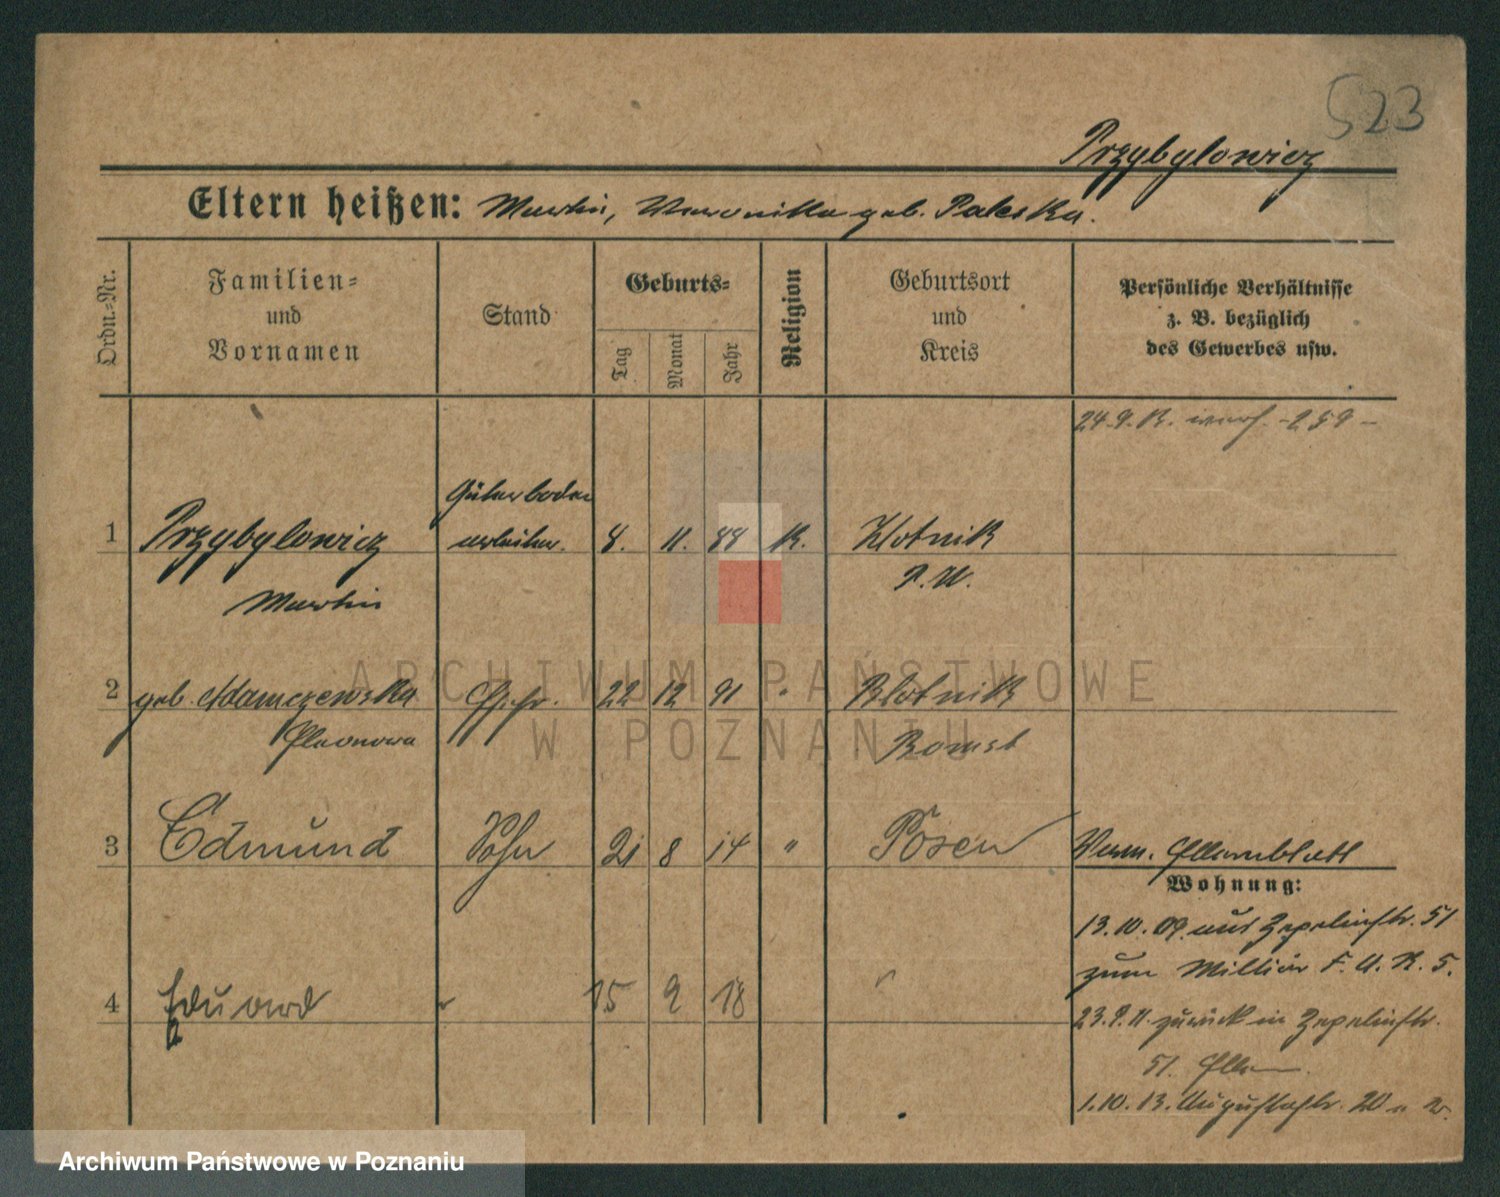 523
Przybylowicz
Eltern heißen: Martin, Veronika geb. Paleska.
Ordn.=Nr.
Familien=
und
Vornamen
Stand
Geburts=
Tag
Monat
Jahr
Religion
Geburtsort
und
Kreis
Persönliche Verhältnisse
z. B. bezüglich
des Gewerbes usw.
24. 9. 259
1 Przybylowicz Güterboden arbeiter. 8. 11. 88 K. Klotnik
Martin P. W.
2 geb. Adamczewska Ehefr. 22 12 91 " Blotnik
Eleonora Bomst
3 Edmund Sohn 21 8 14 " Posen Verm. Elternblatt
Wohnung:
13. 10. 09. aus Zepelinstr. 51
zum Militär F. A. R. 5.
4 Eduard " 15 2 18 "
23. 9. 11. zurück in Zepelinstr.
51. Eltern
1. 10. 13. Augustastr. 20
ARCHIWUM PAŃSTWOWE
W POZNANIU
Archiwum Państwowe w Poznaniu